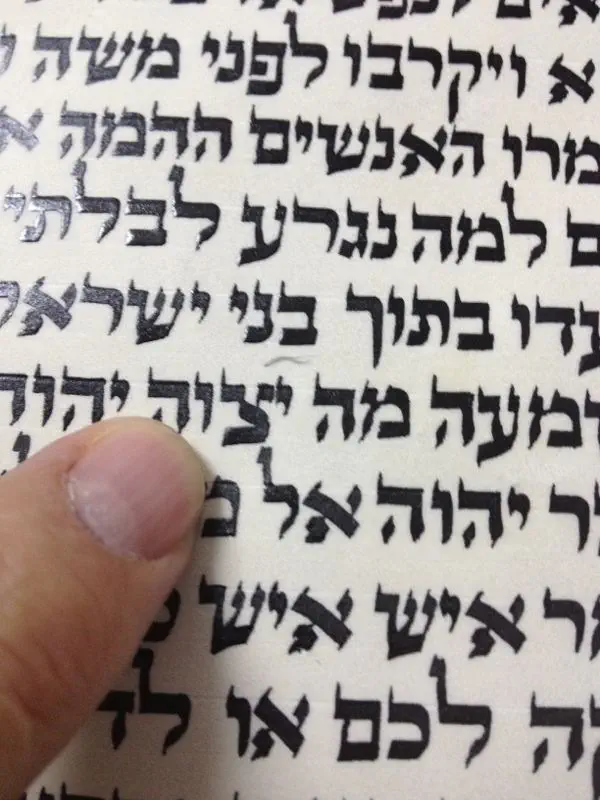 אים לנפש
ויקרבו לפני משה
מרו האנשים ההמה
ם למה נגרע לבלתי
עדו בתוך בני ישראל
שמעה מה יצוה יהוה
ר יהוה אל
ר איש איש
קה לכם או לד